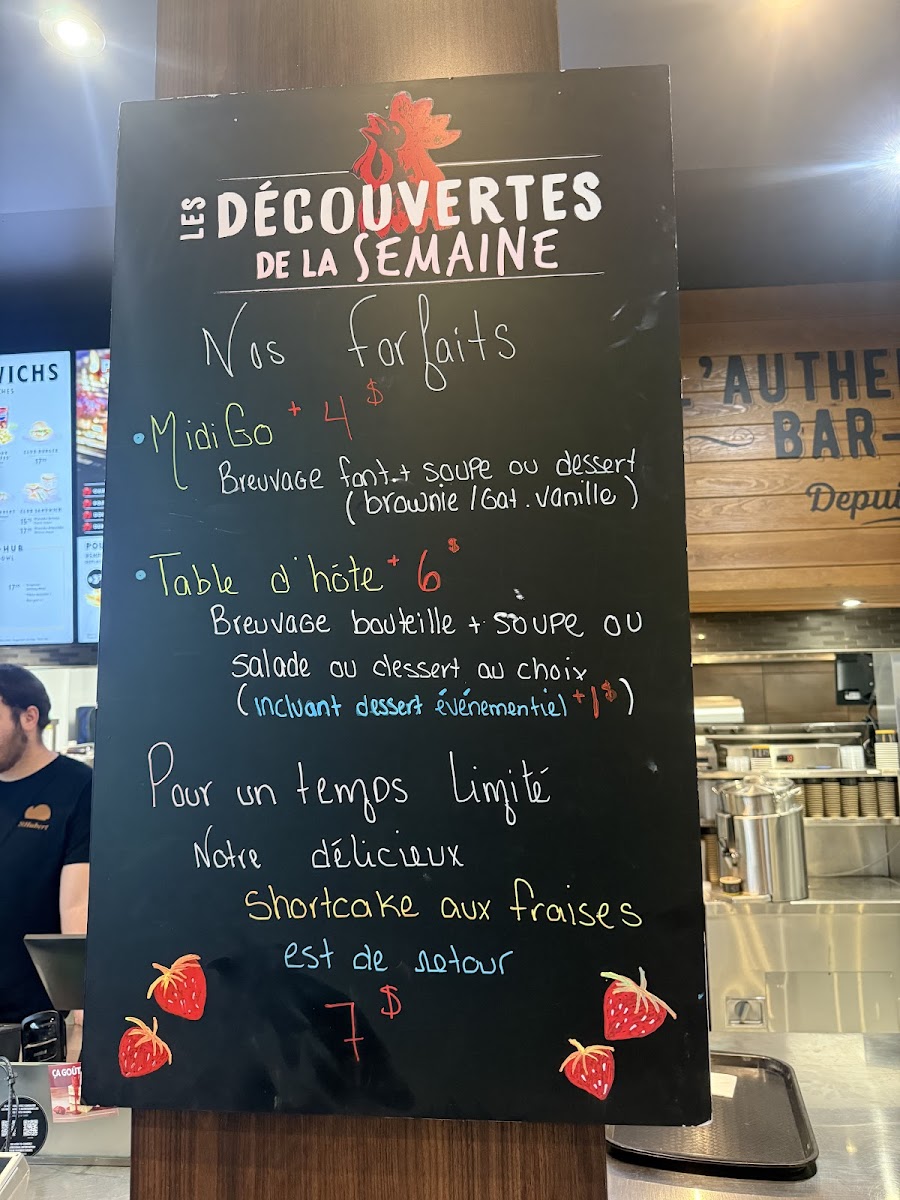 LES DÉCOUVERTES
DE LA SEMAINE
Nos forfaits
• Midi Go + 4 $
Breuvage font. + soupe ou dessert
(brownie / Gat. vanille)
• Table d'hôte + 6 $
Breuvage bouteille + soupe ou
salade ou dessert au choix
(incluant dessert événementiel + 1 $)
Pour un temps limité
Notre délicieux
shortcake aux fraises
est de retour
7 $
L'AUTHE
BAR-
Depui
WICHS
StHubert
ÇA GOÛT